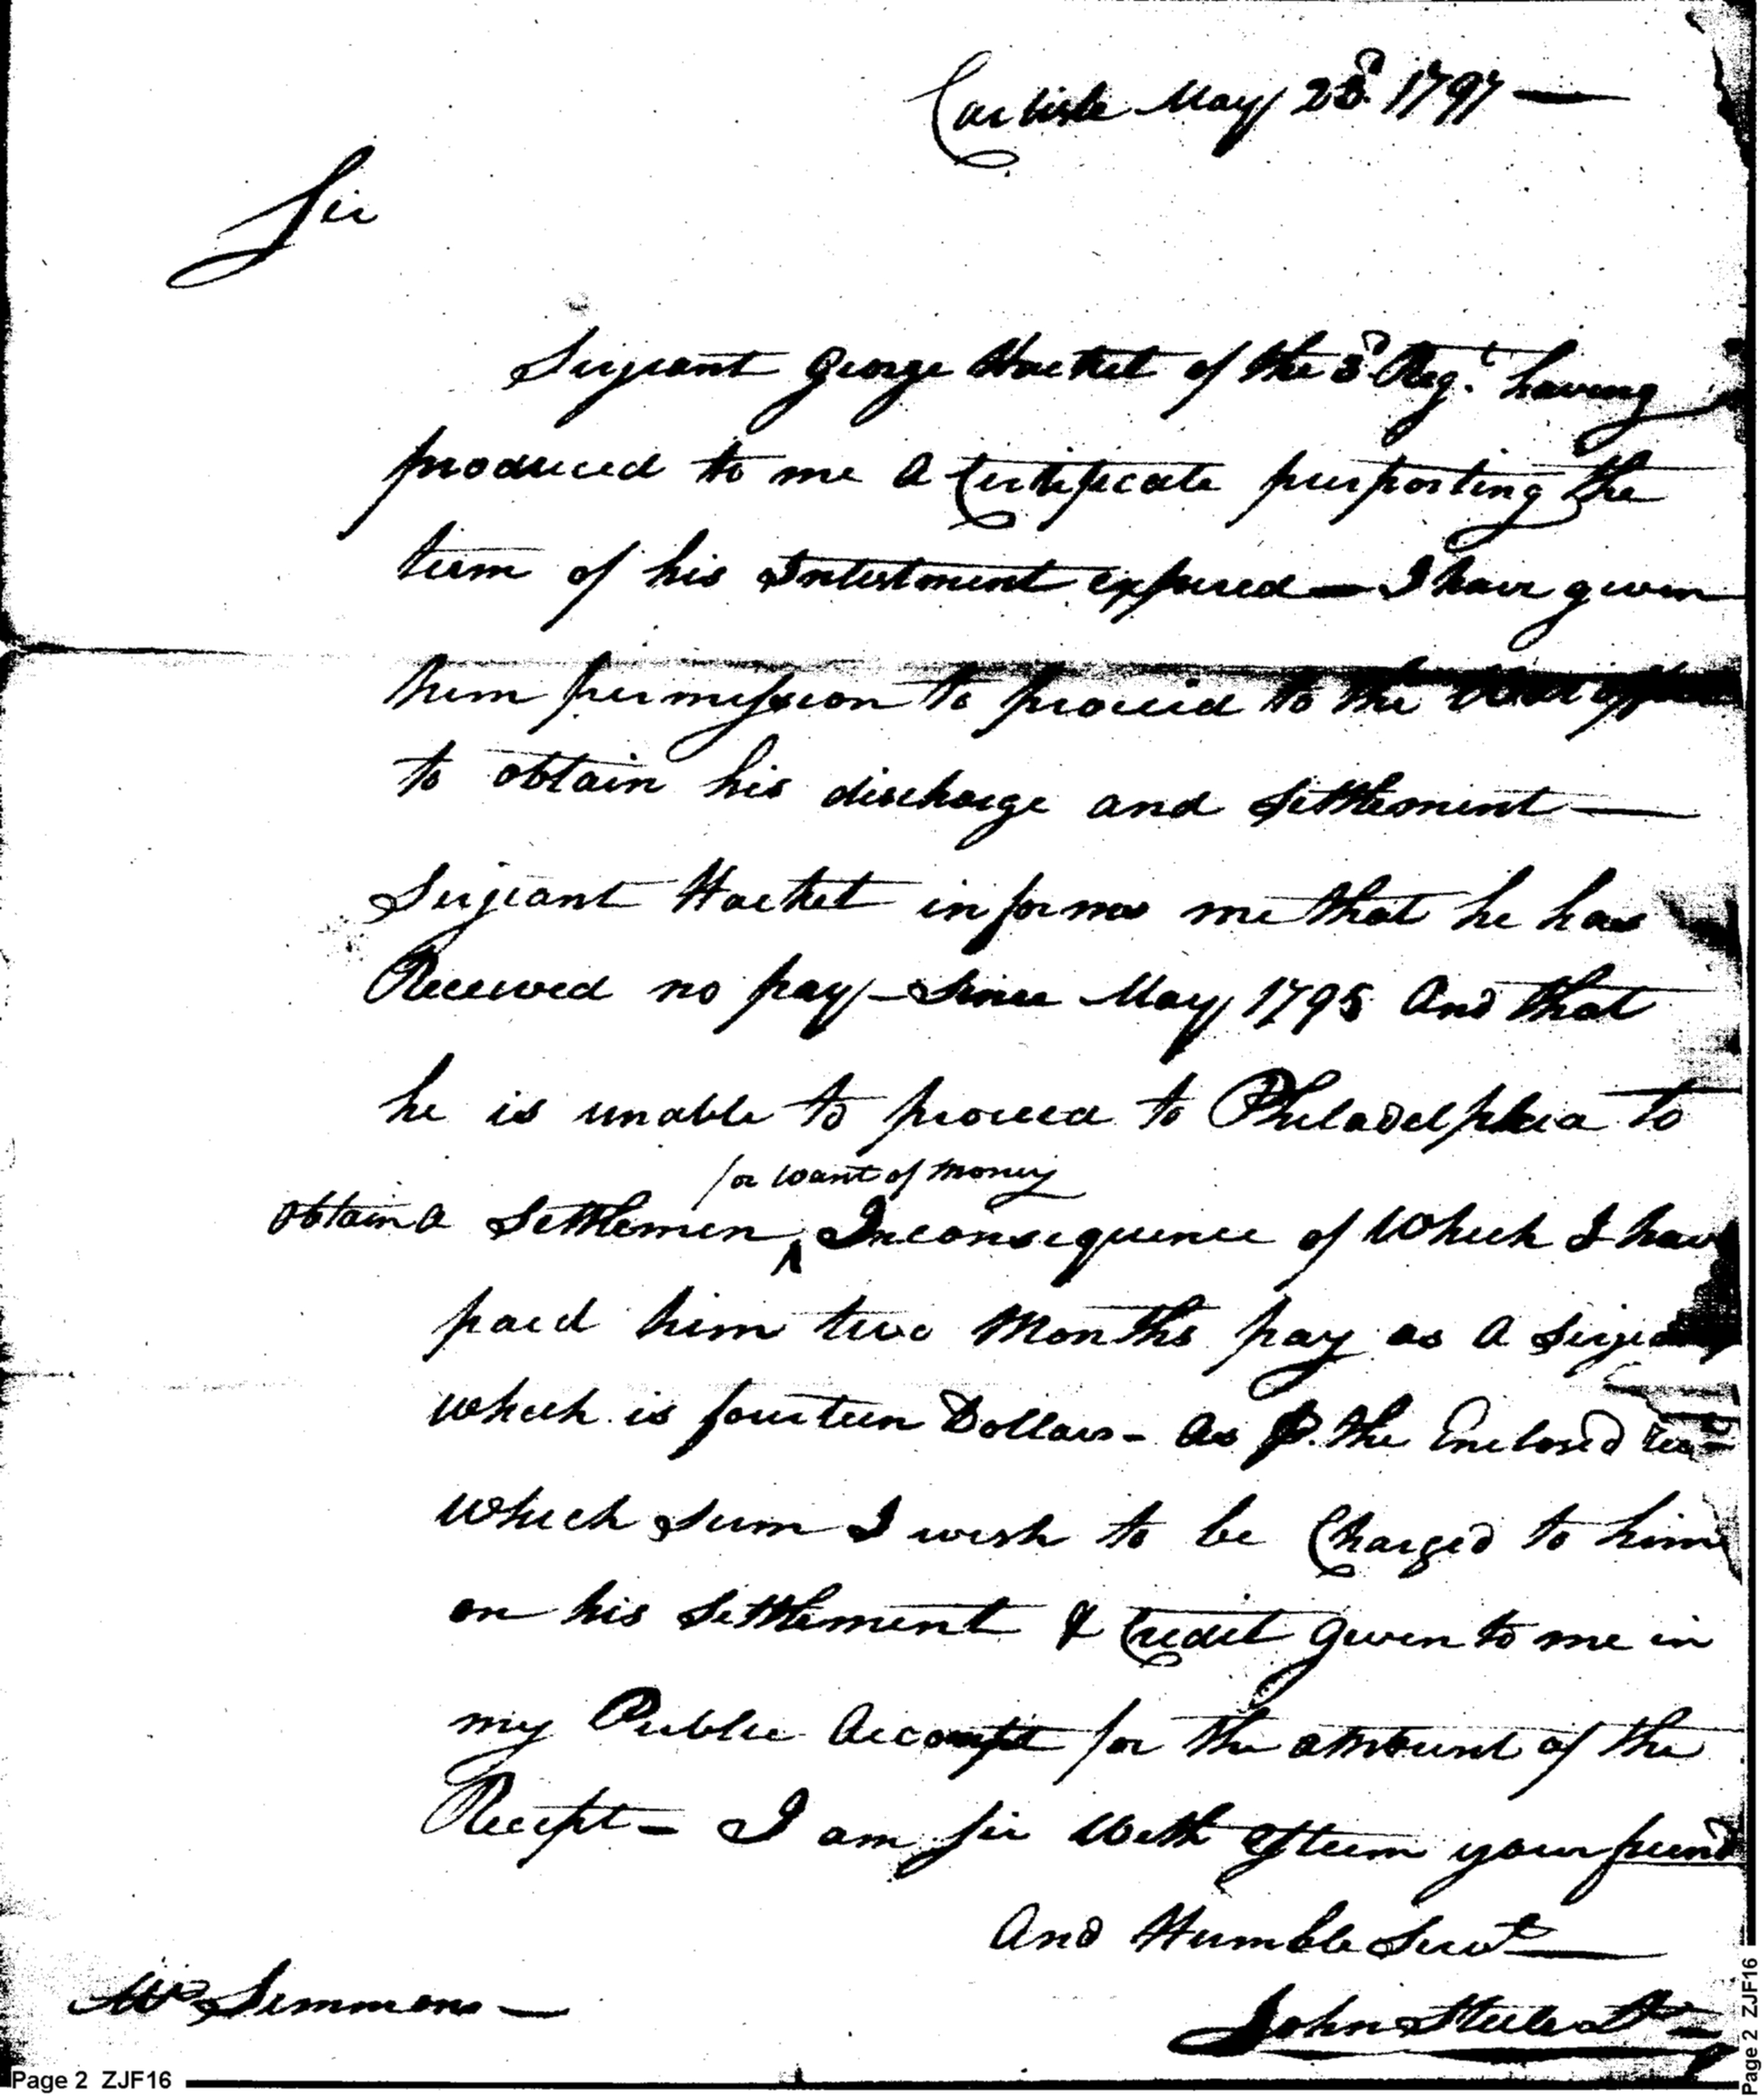 Carlisle May 23d. 1797 —
Sir
Sergeant George Hacket of the 3d Regt. having
produced to me a Certificate purporting the
term of his Inlistment expired — I have given
him permission to proceed to the
to obtain his discharge and Settlement —
Sergeant Hacket informs me that he has
Received no pay — Since May 1795 And that
he is unable to proceed to Philadelphia to
for want of money
obtain a Settlemen ‸ Inconsequence of Which I have
paid him two Months pay as a
which is fourteen Dollars - as p. the Enclosed
which sum I wish to be Charged to him
on his Settlement & Credit given to me in
my Public Accompt for the amount of the
Receipt — I am Sir With Esteem your friend
And Humble Servt —
John Steele
Mr Simmons —
Page 2 ZJF16
Page 2 ZJF16